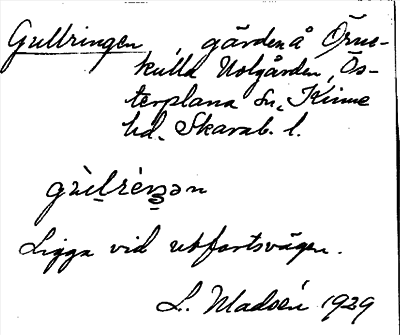 Gullringen, gärden å Örne-
kulla Utgården, Ös-
terplana sn, Kinne
hd. Skarab. l.
Ligga vid utfartsvägen.
L. Madsén 1929